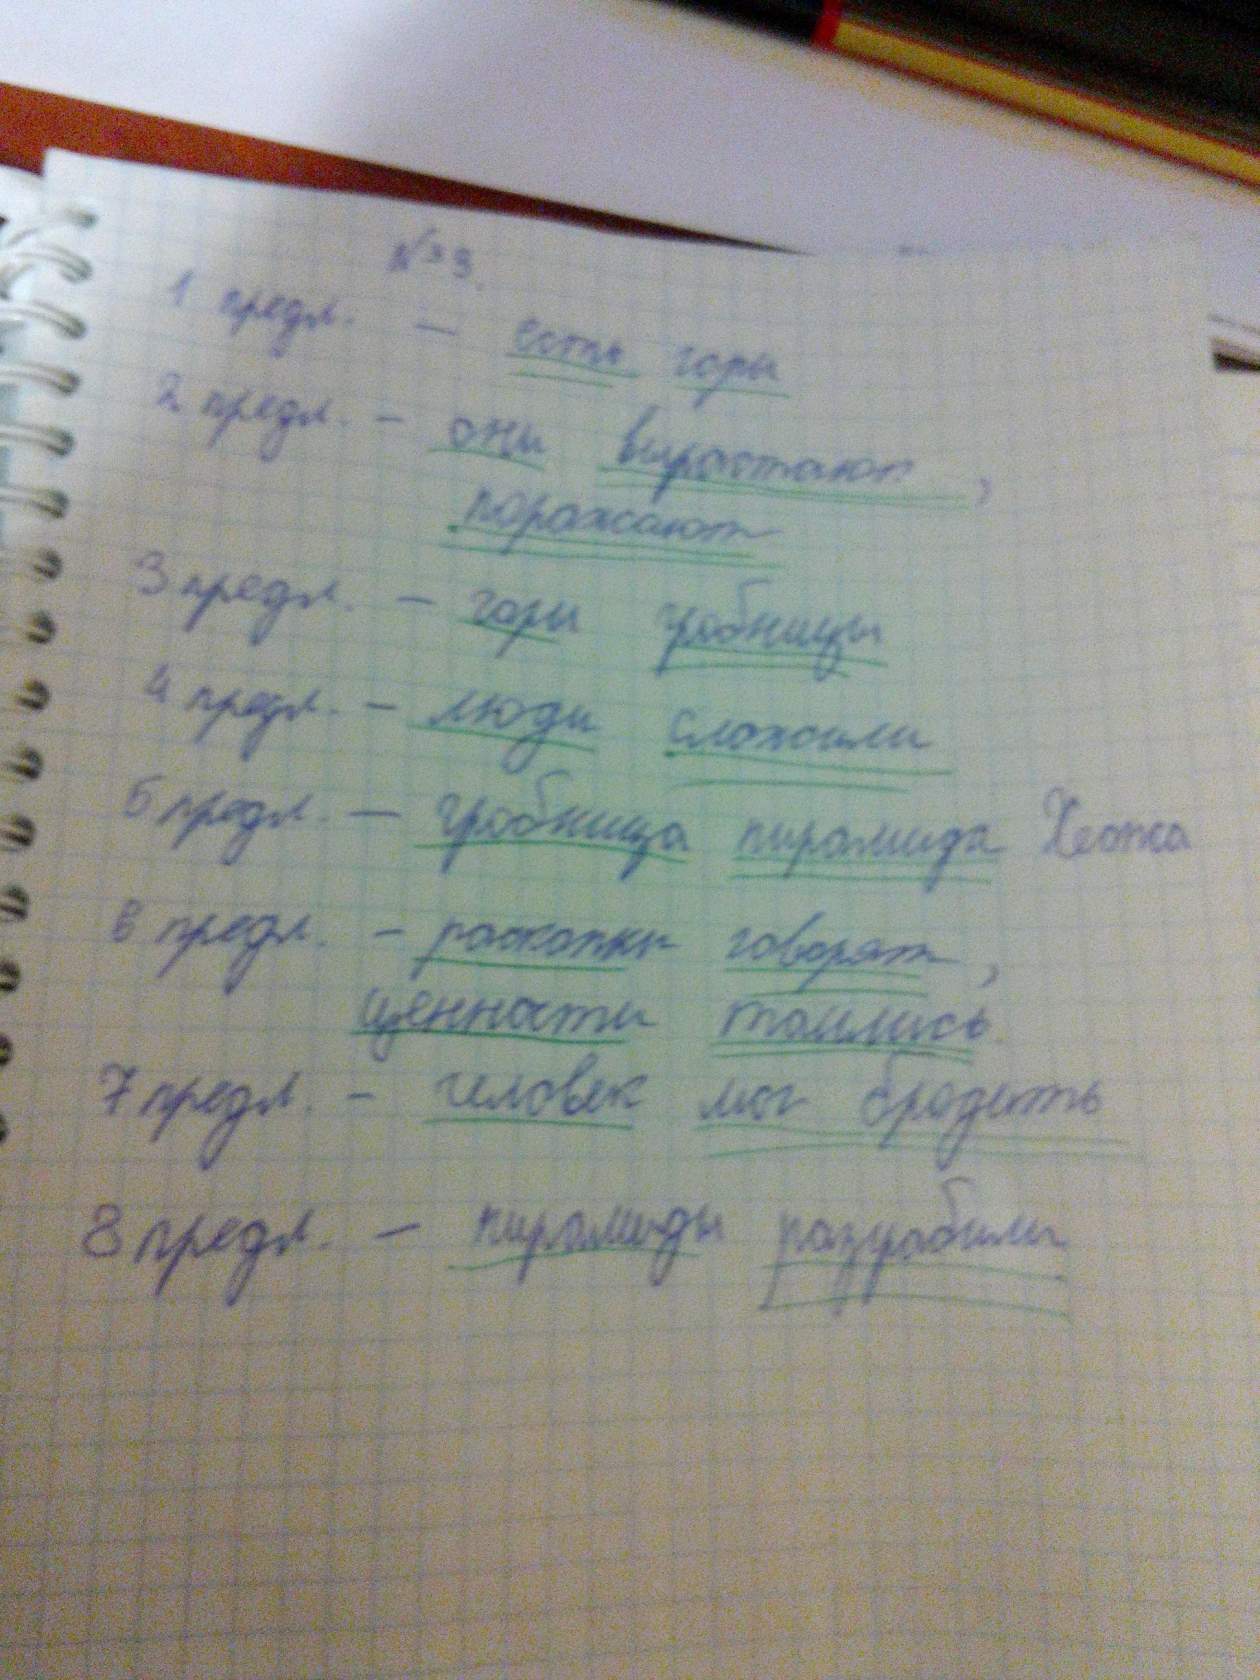 № 3.
1 предл. — есть горы
2 предл. — они вырастают,
поражают
3 предл. — горы гробницы
4 предл. — люди сложили
5 предл. — гробница пирамида Хеопса
6 предл. — раскопки говорят,
ценности таились.
7 предл. — человек мог бродить
8 предл. — пирамиды разграбили